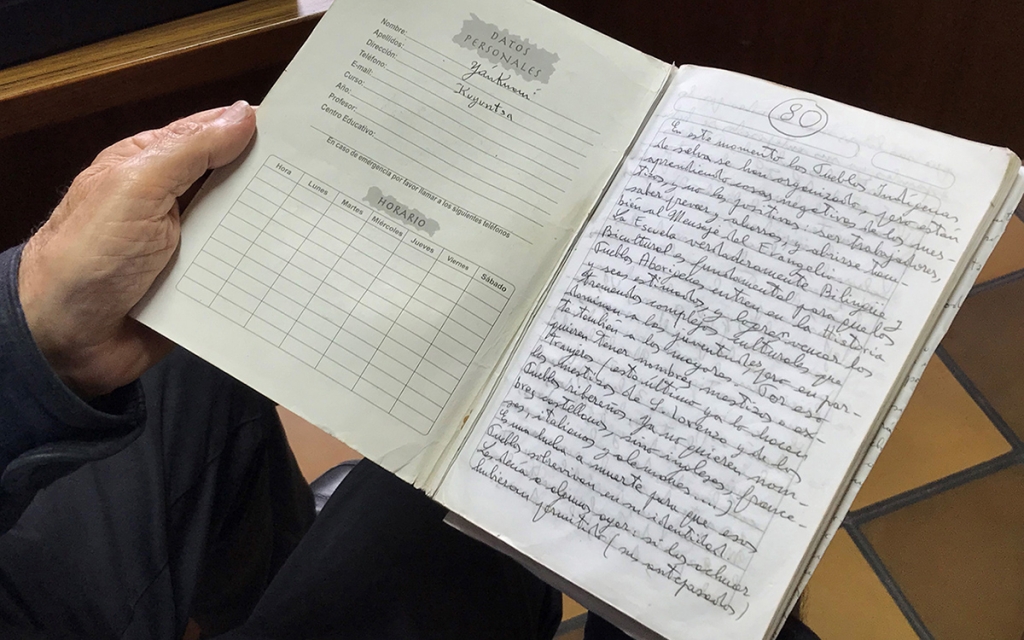 DATOS
PERSONALES
Nombre:
Apellidos:
Dirección:
Teléfono:
E-mail:
Curso:
Año:
Profesor:
Centro Educativo:
Yankuam'
En caso de emergencia por favor llamar a los siguientes teléfonos
HORARIO
Hora Lunes Martes Miércoles Jueves Viernes Sábado
80
En este momento los Pueblos Indígenas
de selva se han organizado, pero están
aprendiendo cosas negativas de los mes-
tizos, y no las positivas: ser trabajadores,
saber prever, ahorrar, y abrirse
bien al Mensaje del Evangelio.
La Escuela verdaderamente Bilingüe y
Bicultural es fundamental para que los
Pueblos Aborígenes entren en la Historia
y sean estimados, y logren vencer los
tremendos complejos culturales que
a los jóvenes dejan
a los mayores. Por eso
quieren tener nombres mestizos o ex-
tranjeros (esto último ya lo hacen
los mestizos de S. Lorenzo y de los
Pueblos ribereños, ya no quieren nom-
bres castellanos, sino ingleses, france-
ses, italianos y alemanes...).
Es una lucha a muerte para que esos
Pueblos sobrevivan en su identidad.
Les decía a alumnos ayer: si los
hubieran (sus antepasados)